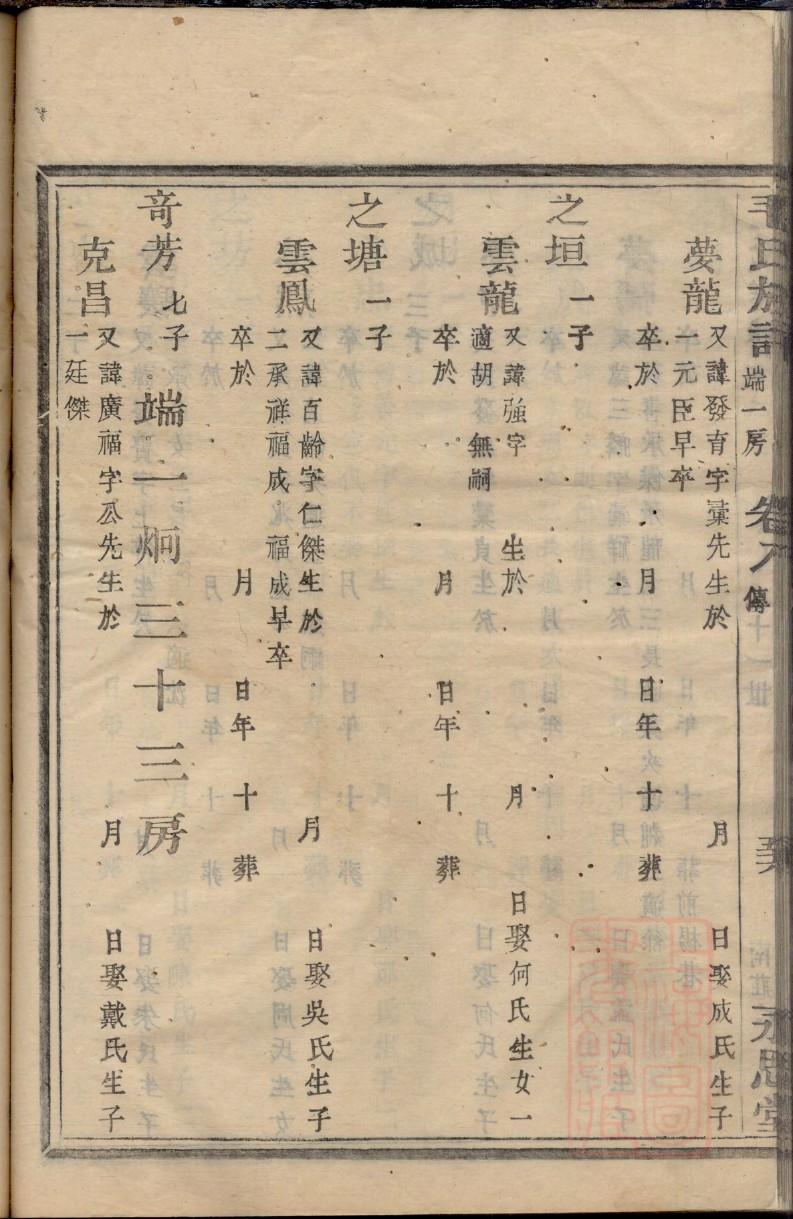 毛氏族譜 端一房 卷八 傳 永思堂
夢龍 又諱發育字彙先生於 月 日娶成氏生子
一元臣早卒
卒於 月 日年 十 葬
之垣 一子
雲龍 又諱強字 生於 月 日娶何氏生女一
適胡 無嗣
卒於 月 日年 十 葬
之塘 一子
雲鳳 又諱百齡字仁傑生於 月 日娶吳氏生子
二承祥福成 福成早卒
卒於 月 日年 十 葬
奇芳 七子 端一炯三十三房
克昌 又諱廣福字公先生於 月 日娶戴氏生子
一廷傑